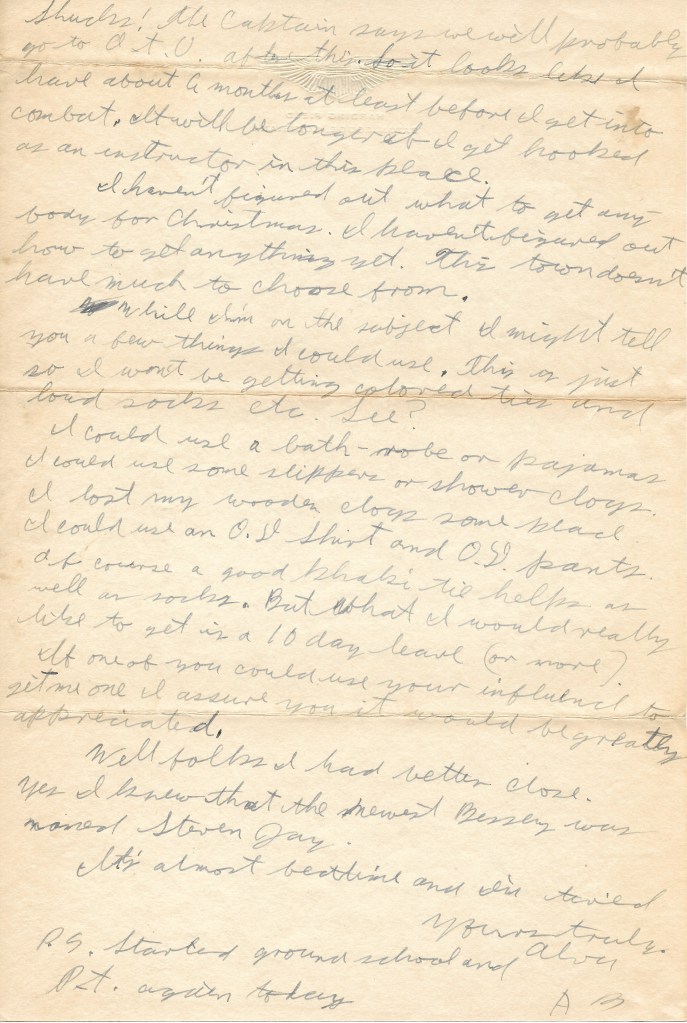 Shucks! The Captain says we will probably
go to O.T.U. after this. So it looks like I
have about 6 months at least before I get into
combat. It will be longer if I get hooked
as an instructor in this place.
I haven't figured out what to get any-
body for Christmas. I haven't figured out
how to get anything yet. This town doesn't
have much to choose from.
While I'm on the subject I might tell
you a few things I could use. This is just
so I won't be getting colored ties and
loud socks etc. See?
I could use a bath-robe or pajamas
I could use some slippers or shower clogs.
I lost my wooden clogs some place.
I could use an O.D. Shirt and O.D. pants.
Of course a good khaki tie helps as
well as socks. But what I would really
like to get is a 10 day leave (or more).
If one of you could use your influence to
get me one I assure you it would be greatly
appreciated.
Well folks I had better close.
Yes I knew that the newest Bessey was
named Steven Jay.
It's almost bedtime and I'm tired
Yours truly.
Alva
P.S. Started ground school and
P.T. again today
A B